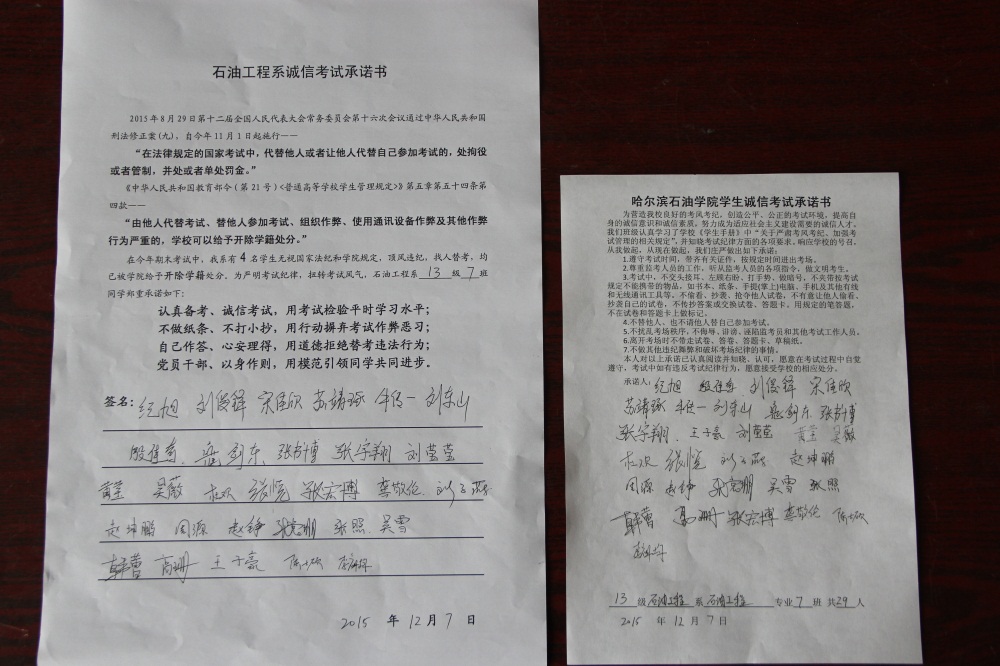 石油工程系诚信考试承诺书
2015年8月29日第十二届全国人民代表大会常务委员会第十六次会议通过中华人民共和国
刑法修正案(九)，自今年11月1日起施行——
“在法律规定的国家考试中，代替他人或者让他人代替自己参加考试的，处拘役
或者管制，并处或者单处罚金。”
《中华人民共和国教育部令(第21号)<普通高等学校学生管理规定>》第五章第五十四条第
四款——
“由他人代替考试、替他人参加考试、组织作弊、使用通讯设备作弊及其他作弊
行为严重的，学校可以给予开除学籍处分。”
在今年期末考试中，我系有4名学生无视国家法纪和学院规定，顶风违纪，找人替考，均
已被学院给予开除学籍处分。为严明考试纪律，扭转考试风气，石油工程系 13 级 7 班
同学郑重承诺如下：
认真备考、诚信考试，用考试检验平时学习水平；
不做纸条、不打小抄，用行动摒弃考试作弊恶习；
自己作答、心安理得，用道德拒绝替考违法行为；
党员干部、以身作则，用模范引领同学共同进步。
签名：纪旭 刘俊铎 宋佳欣 苏靖琢 刘东山
张书博 张宇翔 刘莹莹
黄莹 吴薇 张悦 张宏博 李敬伦
赵坤鹏 周源 赵铮 张照 吴雪
韩蕾 高珊 王子豪
2015 年 12月 7 日
哈尔滨石油学院学生诚信考试承诺书
为营造我校良好的考风考纪，创造公平、公正的考试环境，提高自
身的诚信意识和诚信素质，努力成为适应社会主义建设需要的诚信人才，
我们班级认真学习了学校《学生手册》中“关于严肃考风考纪，加强考
试管理的相关规定”，并知晓考试纪律方面的各项要求，响应学校的号召，
从我做起，从现在做起，我们庄严做出如下承诺：
1.遵守考试时间，带齐有关证件，按规定时间进出考场。
2.尊重监考人员的工作，听从监考人员的各项指令，做文明考生。
3.考试中，不交头接耳、左顾右盼、打手势、做暗号，不夹带按考试
规定不能携带的物品，如书本、纸条、手提(掌上)电脑、手机及其他有线
和无线通讯工具等，不偷看、抄袭、抢夺他人试卷，不有意让他人偷看、
抄袭自己的试卷，不传抄答案或交换试卷、答题卡，用规定的笔答题，
不在试卷和答题卡上做标记。
4.不替他人、也不请他人替自己参加考试。
5.不扰乱考场秩序，不侮辱、诽谤、诬陷监考员和其他考试工作人员。
6.离开考场时不带走试卷、答卷、答题卡、草稿纸。
7.不做其他违纪舞弊和破坏考场纪律的事情。
本人对以上承诺已认真阅读并知晓、认可，愿意在考试过程中自觉
遵守，考试中如有违反考试纪律行为，愿意接受学校的相应处分。
承诺人：纪旭 刘俊铎 宋佳欣
苏靖琢 刘东山 张书博
张宇翔 王子豪 刘莹莹 黄莹 吴薇
张悦 赵坤鹏
周源 赵铮 吴雪 张照
韩蕾 高珊 张宏博 李敬伦
13 级 石油工程 系 石油工程 专业 7 班 共29人
2015 年 12 月 7 日